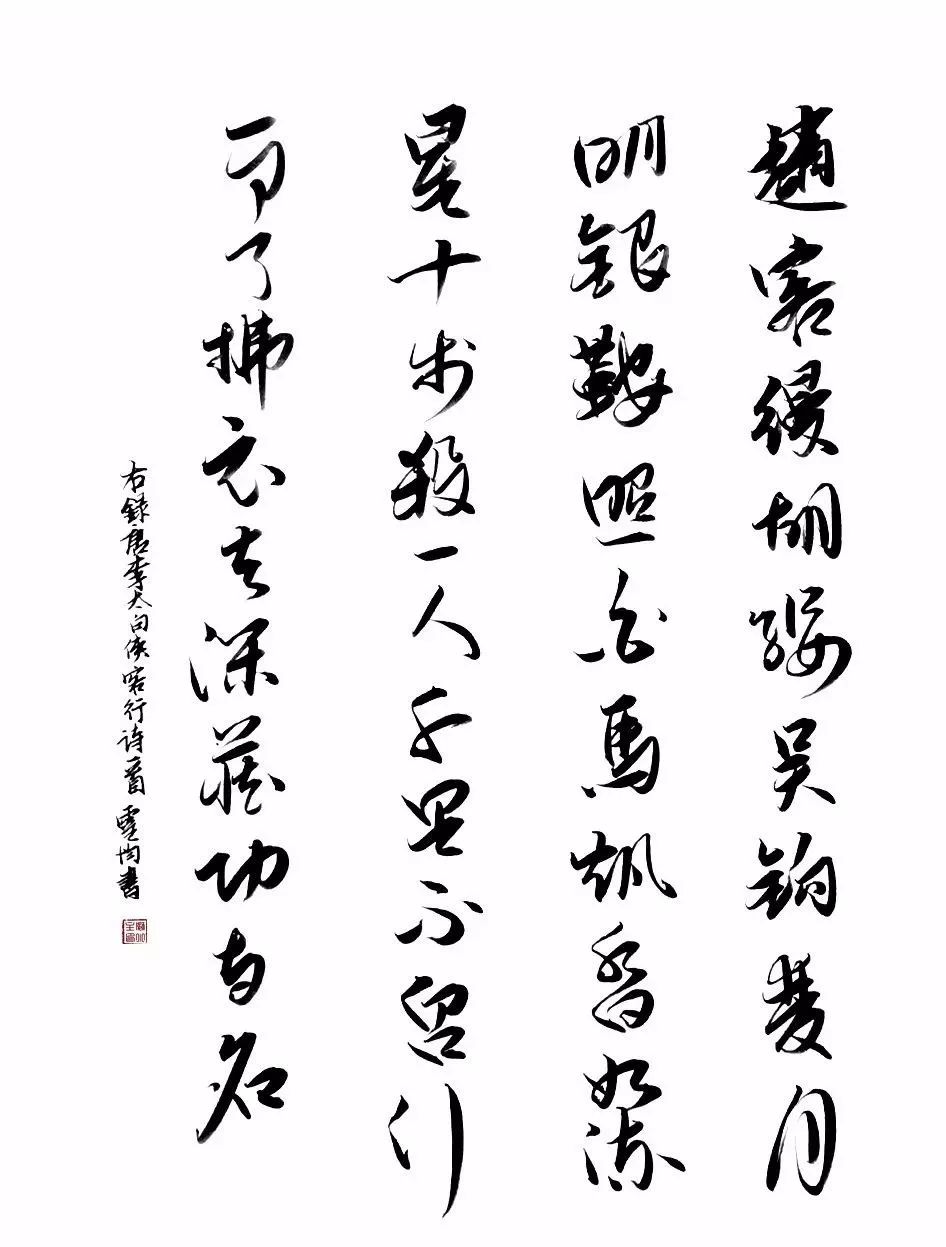 趙客縵胡纓吴鉤月
明銀鞍照白馬颯沓如流
星十步殺一人千里不留行
事了拂衣去深藏功与名
右録唐李太白俠客行詩一首 靈均書